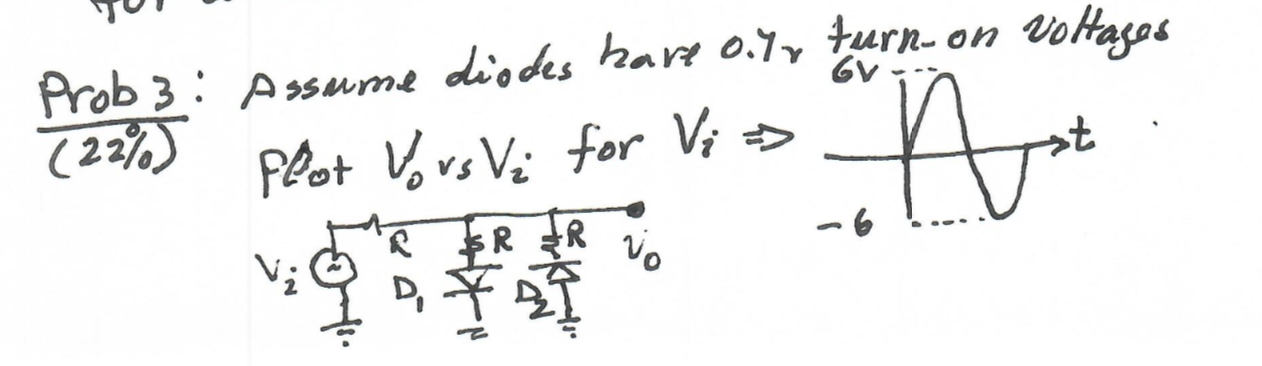 Prob 3: Assume diodes have 0.7v turn-on voltages
(22%)
Plot Vo vs Vi for Vi ⇒
6V
t
-6
R
R
R
Vi
D1
D2
Vo